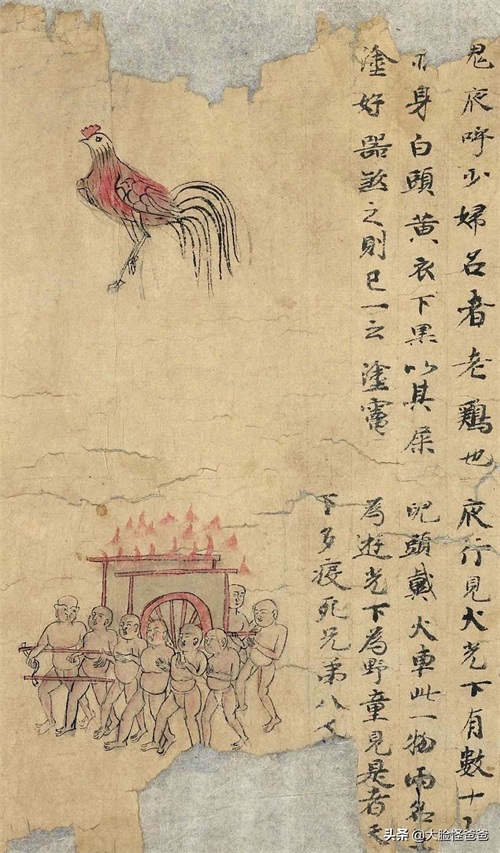 鬼夜呼少婦名者老鷄也
不身白頭黃衣下黑以其屎
塗好器煞之則已一云塗竈
夜行見火光下有數十
兒頭戴火車此一物兩名
為遊光下為野童見是者天
下多疫死兄弟八人
头条 @大脸怪爸爸